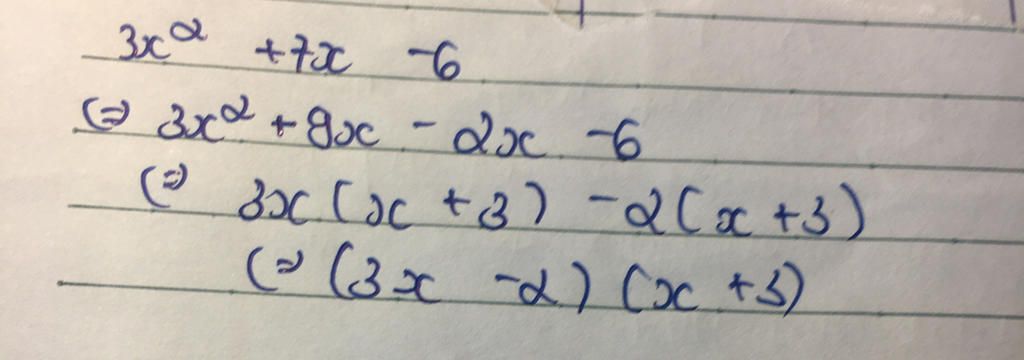 3x² +7x -6
(=) 3x² + 9x - 2x -6
(=) 3x(x +3) -2(x +3)
(=) (3x -2) (x +3)